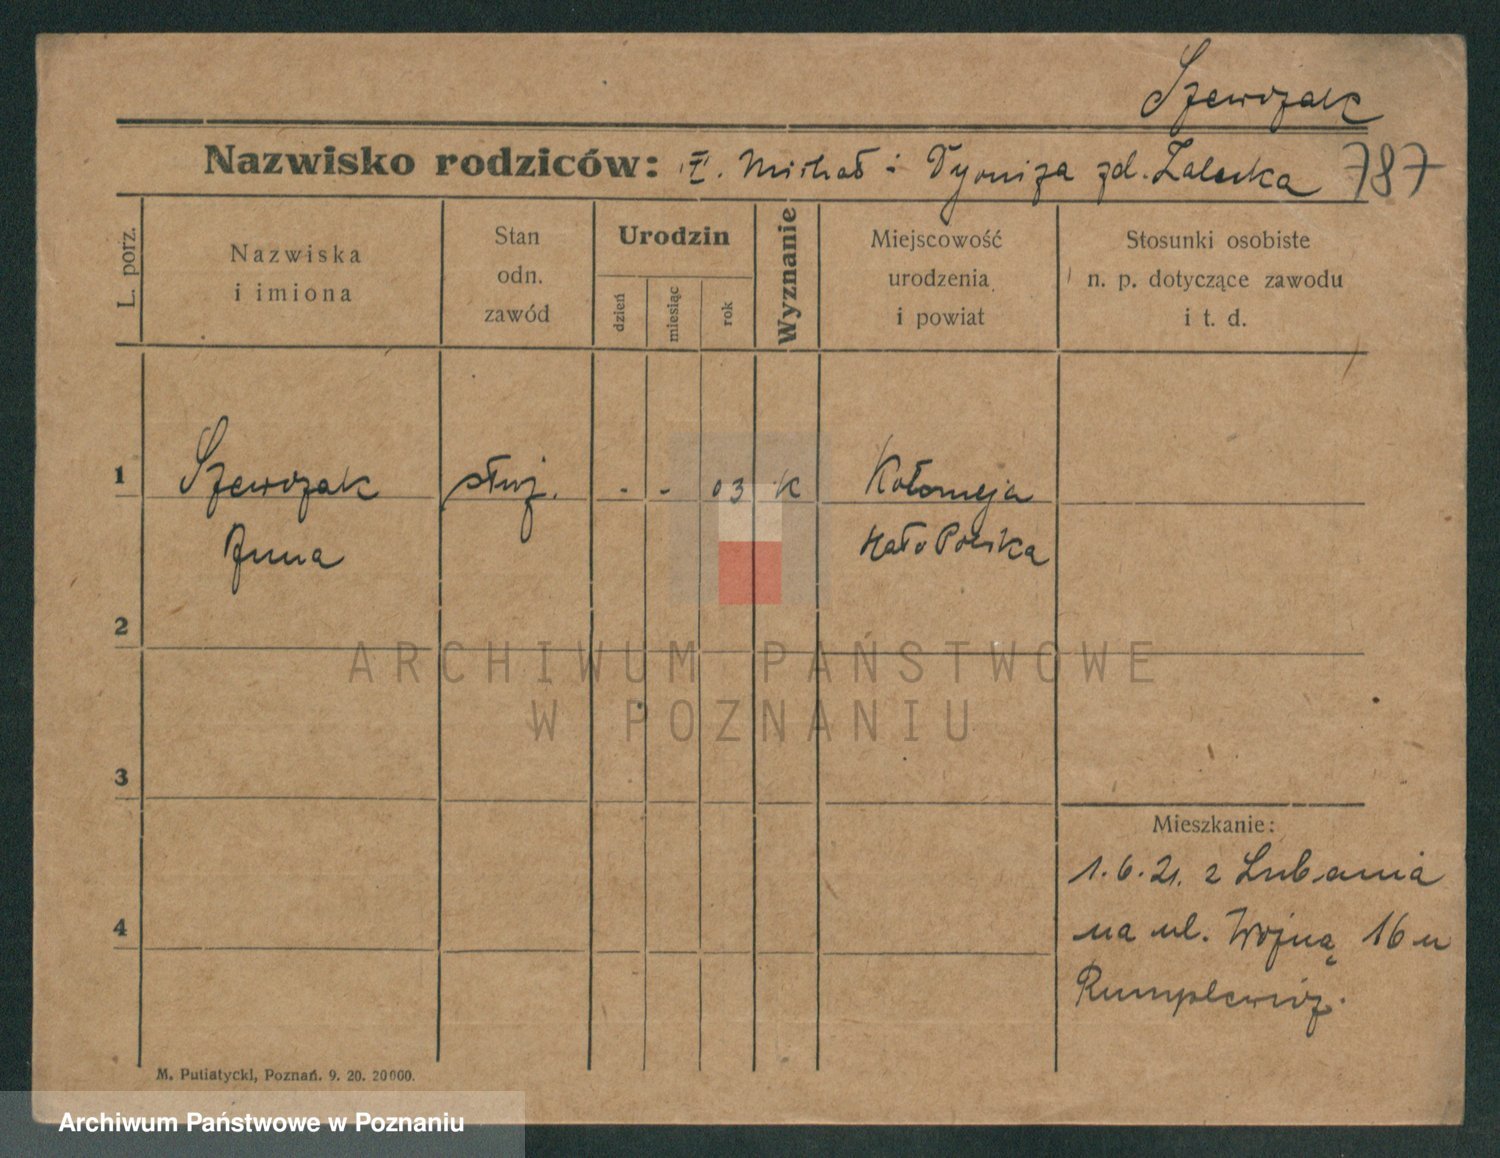 Szewczak
Nazwisko rodziców: Michał i Dyoniza zd. Zalecka 787
L. porz.
Nazwiska
i imiona
Stan
odn.
zawód
Urodzin
dzień
miesiąc
rok
Wyznanie
Miejscowość
urodzenia
i powiat
Stosunki osobiste
n. p. dotyczące zawodu
i t. d.
1
Szewczak służ. - - 03 K Kołomeja
Anna Mało Polska
2
3
4
Mieszkanie:
1.6.21. z Lubania
na ul. Wojną 16 u
Rumplewicz.
M. Putiatycki, Poznań. 9. 20. 20000.
ARCHIWUM PAŃSTWOWE
W POZNANIU
Archiwum Państwowe w Poznaniu